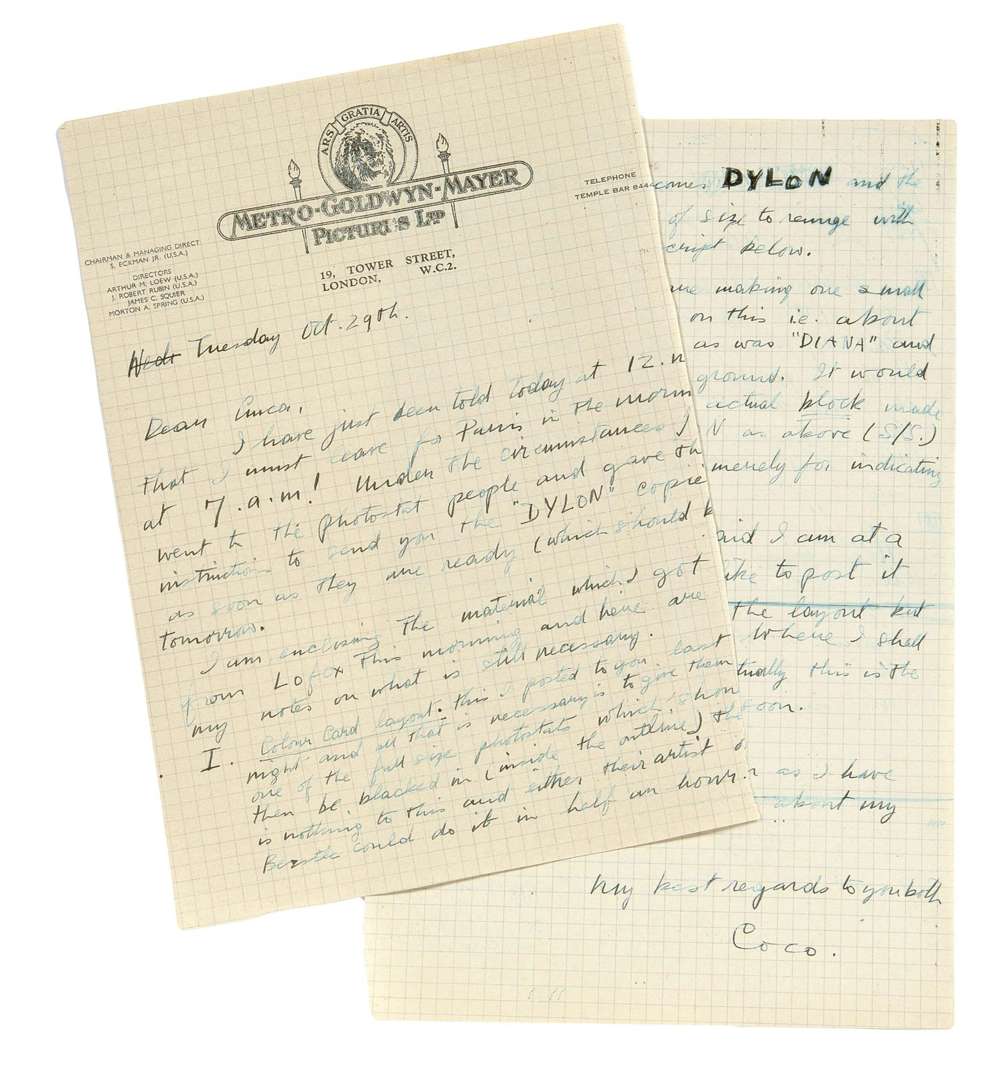 ARS GRATIA ARTIS
METRO-GOLDWYN-MAYER
PICTURES LTD
TELEPHONE
TEMPLE BAR 844
19, TOWER STREET,
LONDON, W.C.2.
CHAIRMAN & MANAGING DIRECT
S. ECKMAN JR. (U.S.A.)
DIRECTORS
ARTHUR M. LOEW (U.S.A.)
J. ROBERT RUBIN (U.S.A.)
JAMES C. SQUIER
MORTON A. SPRING (U.S.A.)
Tuesday Oct. 29th.
Dear
I have just been told today at 12.
that I must leave for Paris in the morn
at 7.a.m! Under the circumstances I
went to the photostat people and gave th
instruction to send you the "DYLON" copie
as soon as they are ready (which should b
tomorrow.
I am enclosing the material which I got
from this morning and here are
my notes on what is still necessary.
I. Colour Card layout. This I posted to you last
night and all that is necessary is to give them
one of the full size photostats which shon
then be blacked in (inside the outline) the
is nothing to this and either their artist o
could do it in half an hour.
come. DYLON and the
of size to range with
cript below.
are making one small
on this i.e. about
as was "DIANA" and
ground. It would
actual block made
N as above (S/S.)
merely for indicating
aid I am at a
ike to post it
the layout but
where I shall
tually this is the
soon.
as I have
about my
...
My best regards to you both
Coco.